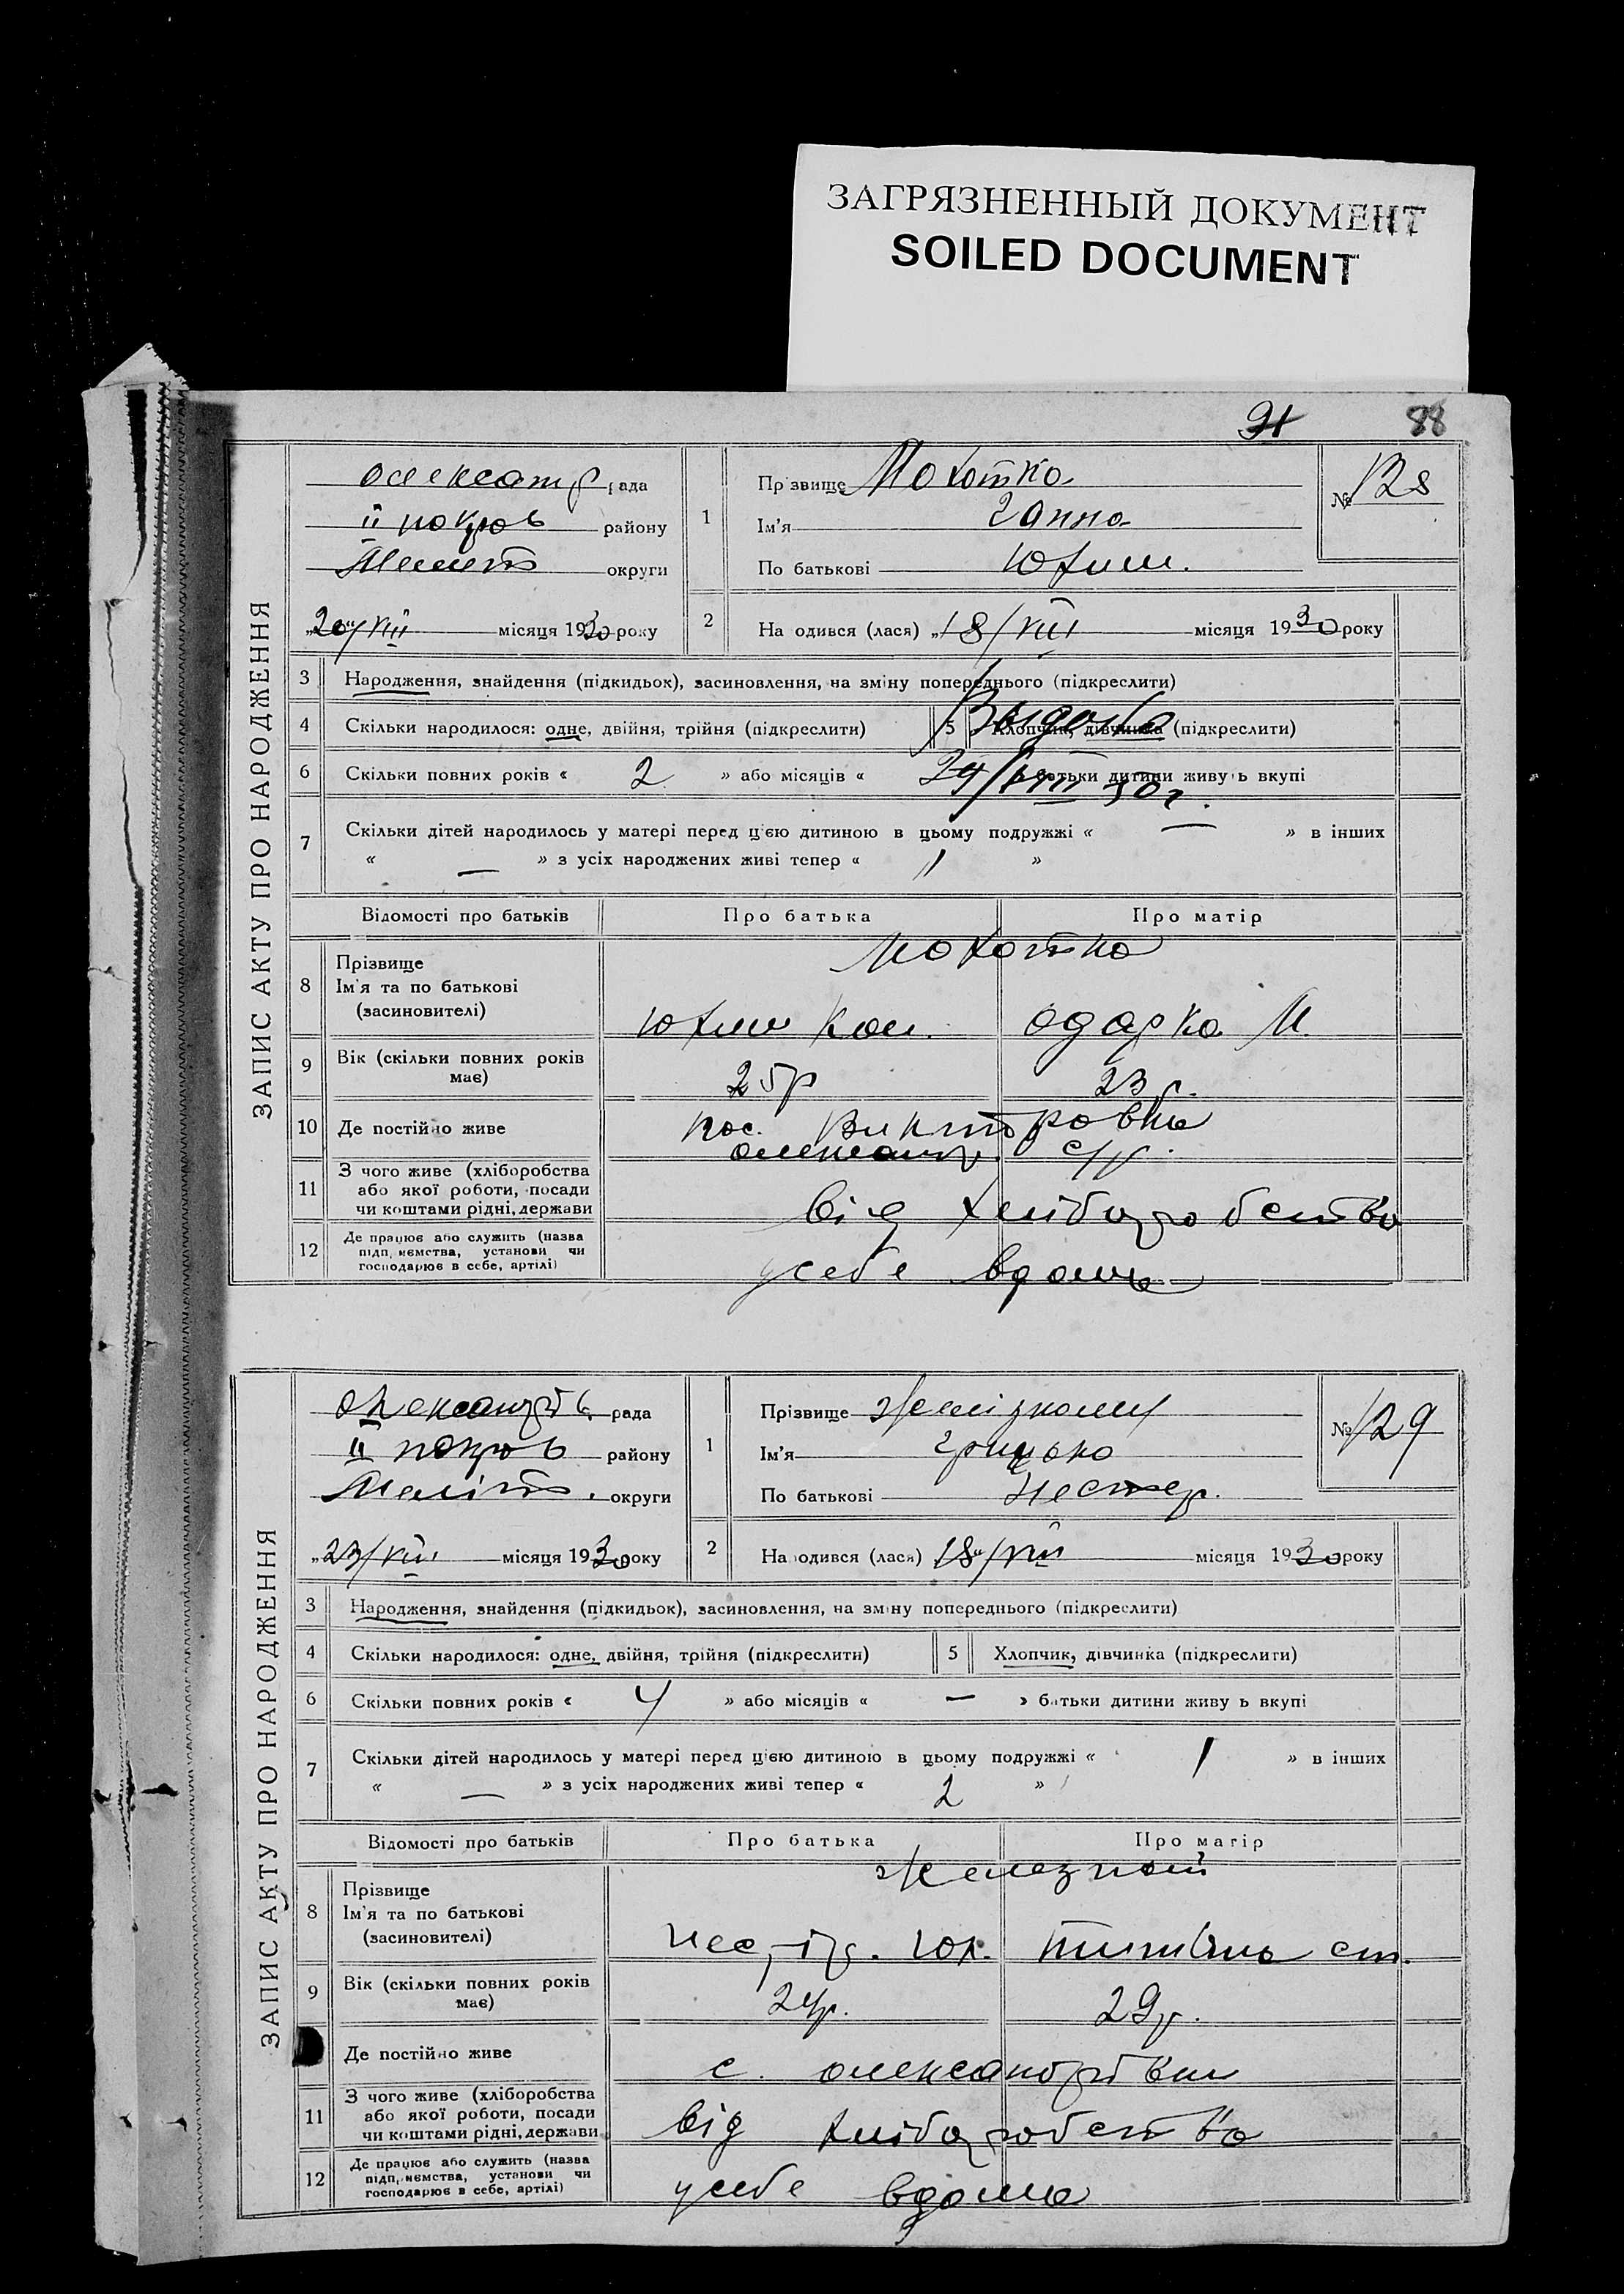 ЗАГРЯЗНЕННЫЙ ДОКУМЕНТ
SOILED DOCUMENT
88
ЗАПИС АКТУ ПРО НАРОДЖЕННЯ
Олександр рада
II покров району
Мелит округи
„20“/VIII місяця 1930 року
1 Прізвище Мохотка
Ім'я Ганна
По батькові Юхим.
№ 128
2 Народився (лася) „18/VIII місяця 1930 року
3 Народження, знайдення (підкидьох), засиновлення, на зміну попереднього (підкреслити)
4 Скільки народилося: одне, двійня, трійня (підкреслити) 5 Хлопчик, дівчинка (підкреслити)
6 Скільки повних років « 2 » або місяців « батьки дитини живуть вкупі
24/VIII 30 г.
7 Скільки дітей народилось у матері перед цією дитиною в цьому подружжі « — » в інших
« — » з усіх народжених живі тепер « 1 »
Відомості про батьків Про батька Про матір
8 Прізвище Мохотка
Ім'я та по батькові
(засиновителі) Юхим Кон. Одарка М.
9 Вік (скільки повних років має) 25р 23 р.
10 Де постійно живе пос. Викторовка
Олександр. с/р.
11 З чого живе (хліборобства або якої роботи, посади чи коштами рідні, держави від хліборобства
12 Де працює або служить (назва підприємства, установи чи господарює в себе, артілі) усебе вдома
ЗАПИС АКТУ ПРО НАРОДЖЕННЯ
Олександрів. рада
II покров району
Меліт. округи
„23/VIII місяця 1930 року
1 Прізвище Желізнюй
Ім'я Грицько
По батькові Нестер.
№ 129
2 Народився (лася) „18“/VIII місяця 1930 року
3 Народження, знайдення (підкидьок), засиновлення, на зміну попереднього (підкреслити)
4 Скільки народилося: одне, двійня, трійня (підкреслити) 5 Хлопчик, дівчинка (підкреслити)
6 Скільки повних років « 4 » або місяців « — » батьки дитини живуть вкупі
7 Скільки дітей народилось у матері перед цією дитиною в цьому подружжі « 1 » в інших
« — » з усіх народжених живі тепер « 2 »
Відомості про батьків Про батька Про матір
8 Прізвище Железной
Ім'я та по батькові
(засиновителі) Юх. ст.
9 Вік (скільки повних років має) 24р. 29р.
Де постійно живе с. Олександрівки
11 З чого живе (хліборобства або якої роботи, посади чи коштами рідні, держави від хліборобства
12 Де працює або служить (назва підприємства, установи чи господарює в себе, артілі) усебе вдома